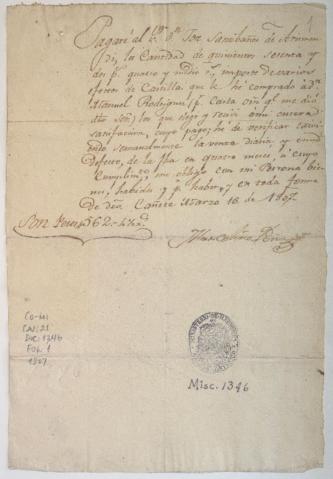 Pagaré al Sor Dn Jose Santibañes de Arismen
di, la Cantidad de quinientos sesenta y
dos ps quatro y medio rs importe de varios
efectos de Castilla que le he comprado a Dn
Manuel Rodriguez pr Carta orn qe me dió
dho Sor los que tengo y recivi a mi entera
satisfaccion, cuyo pago he de verificar
semanalmente la venta diaria y en
defecto, de la fha en quatro meses, a cuyo
Cumplimto me obligo con mi Persona bie
nes, habidos y pr haber, y en toda forma
de dro Cañete Marzo 16 de 1807
Son Pesos 562-4½ rs
Co-Mi
Caj: 21
Doc: 1346
Fol: 1
1807
Misc. 1346